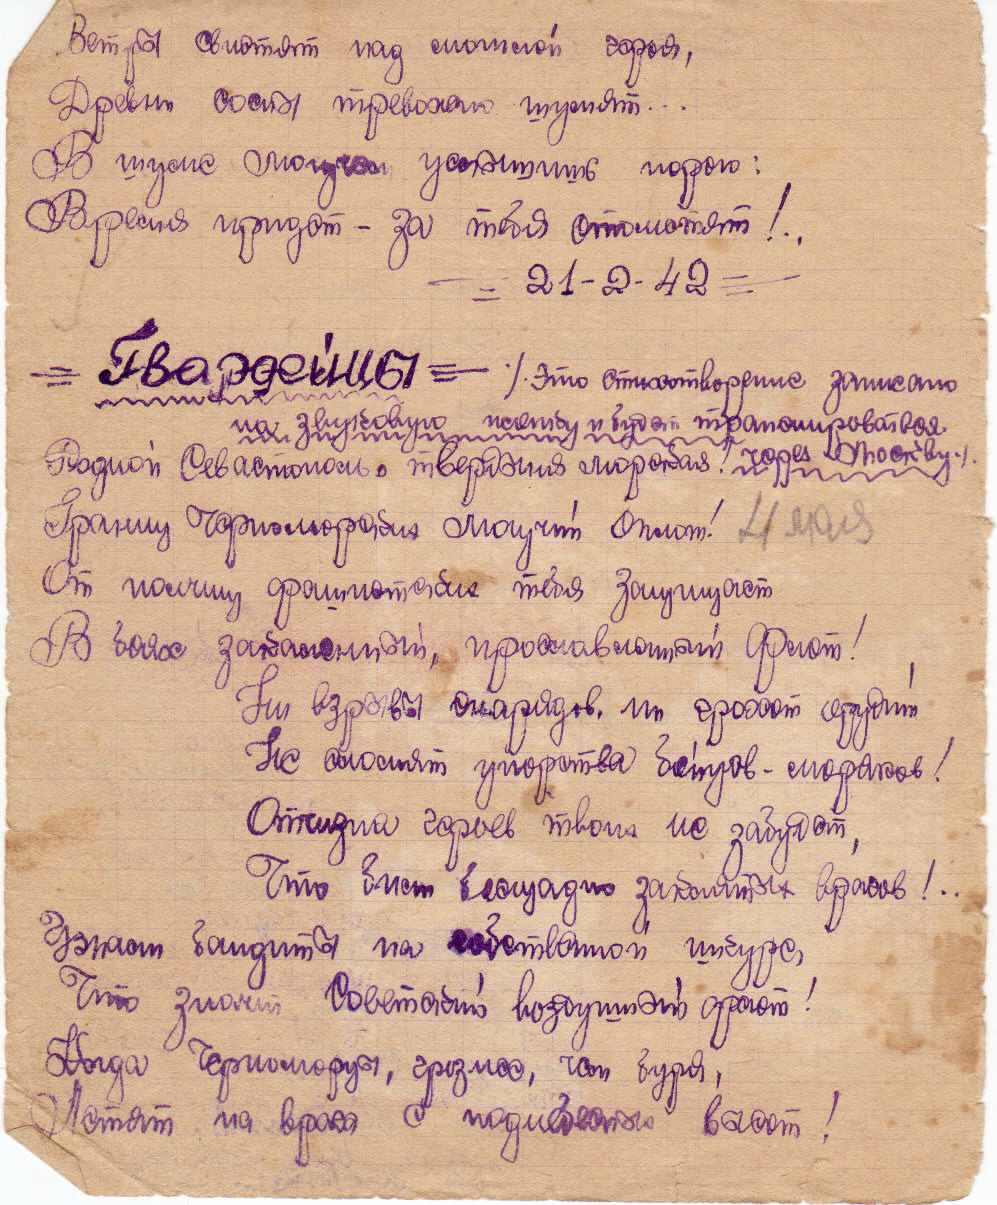 Ветры свистят над могилой героя,
Древни сосны тревожно шумят...
В шуме могучем услышишь порою:
Время придёт - за тебя отомстят!..
= 21-2-42 =
= Гвардейцы = /. Это стихотворение записано
на звуковую пленку и будет транслироваться
через Москву ./.
Родной Севастополь, твердыня морская!
Границ Черноморских могучий оплот! 4 мая
От полчищ фашистских тебя защищает
В боях закаленный, прославленный флот!
Ни взрывы снарядов, ни грохот орудий
Не сломят упорства бойцов-моряков!
Отчизна героев твоих не забудет,
Что бьют беспощадно заклятых врагов!..
Узнают бандиты на собственной шкуре,
Что значит Советский воздушный флот!
Когда Черноморцы, грознее, чем буря,
Летят на врага с поднебесных высот!